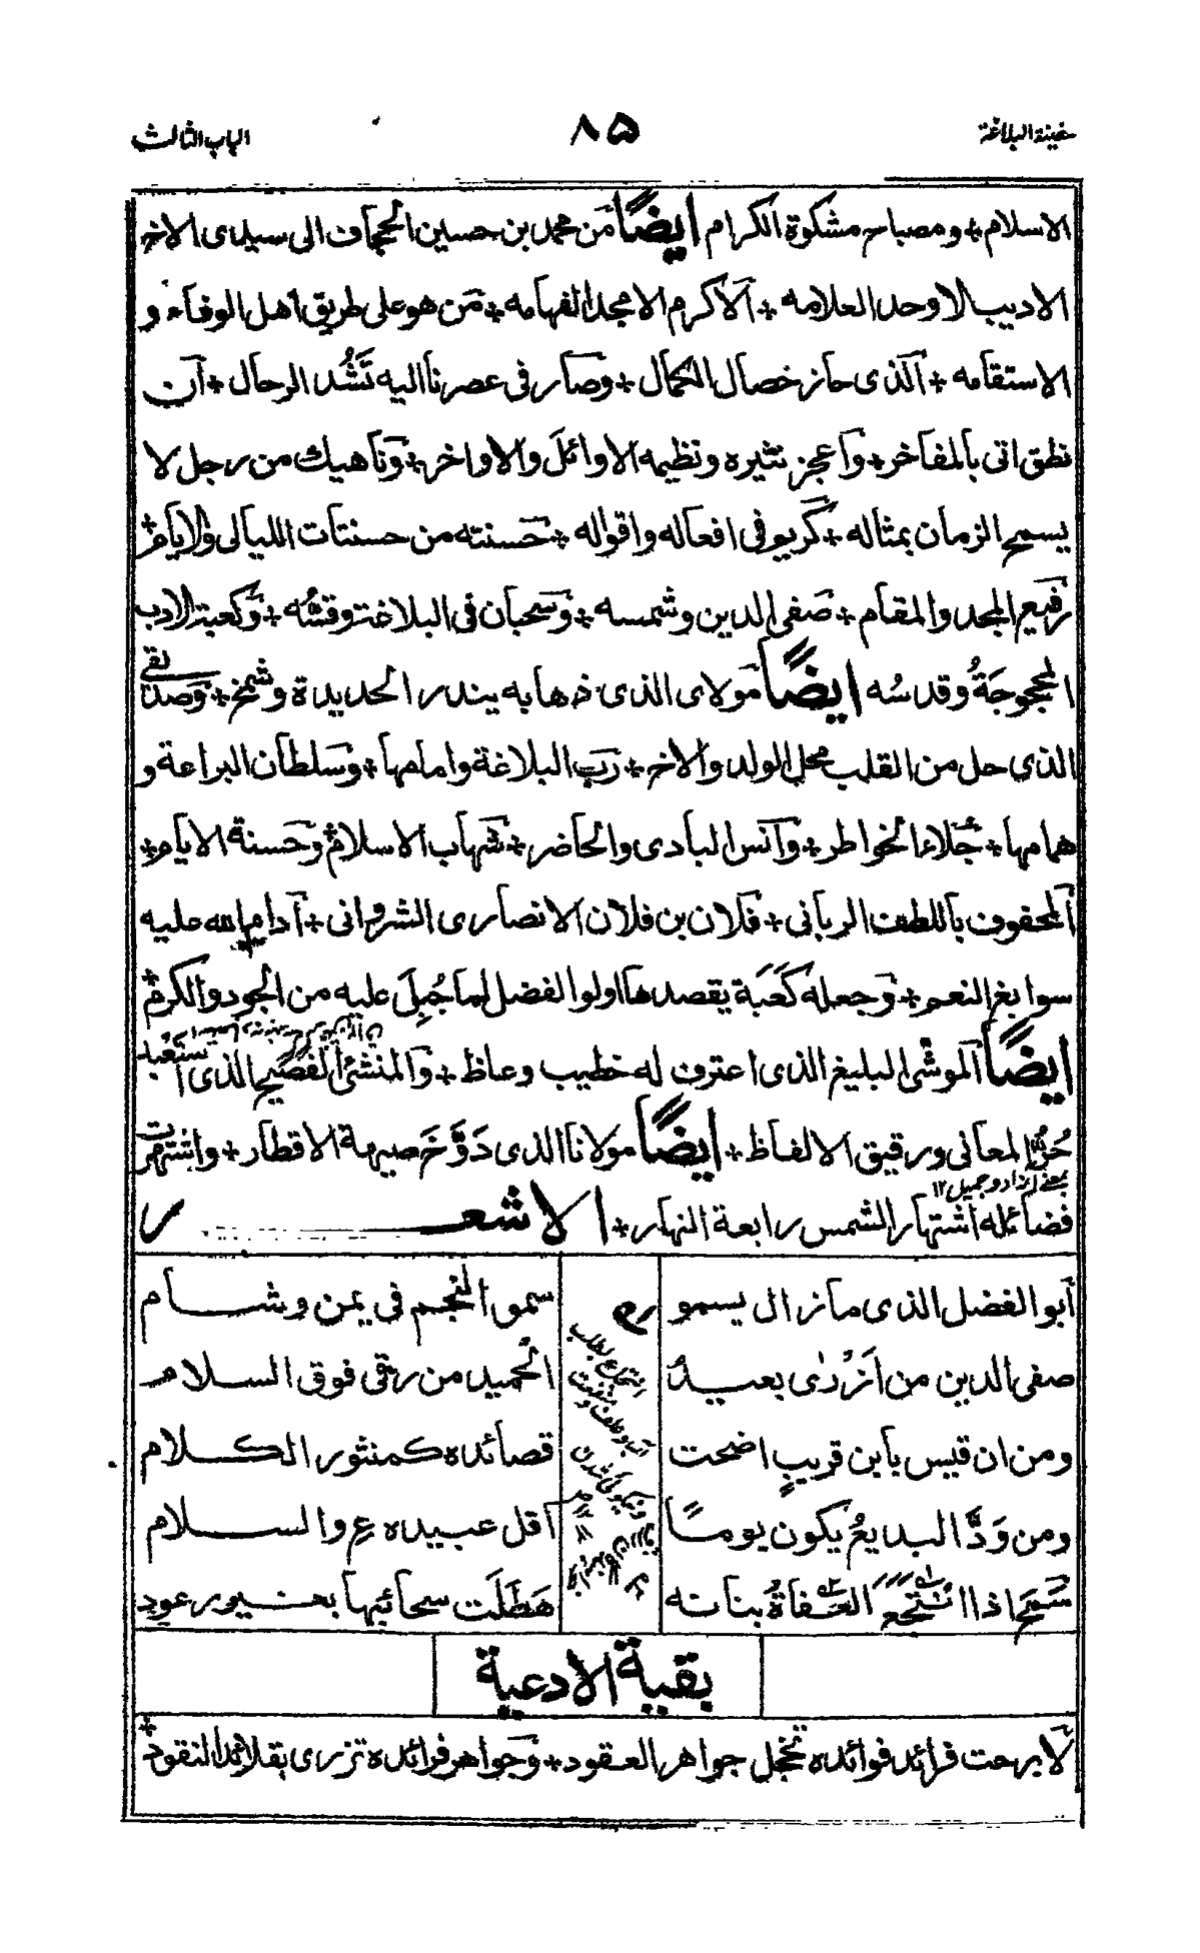 الباب الثالث ٨٥ خفينة البلاغة
الاسلام + ومصباح مشكوة الكرام ايضًا من محمد بن حسين الحجاف الى سيدى الاخ
الاديب الاوحد العلامه + الاكرم الامجد الفهامه + من هو على طريق اهل الوفاء و
الاستقامه + الذى حاز خصال الكمال + وصار فى عصرنا اليه تَشُد الرحال + ان
نطق اتى بالمفاخر + واعجز نثيره ونظيمه الاوائل والاواخر + وناهيك من رجل لا
يسمح الزمان بمثاله + كريم فى افعاله واقواله + حسنته من حسنات الليالى والايام +
رفيع المجد والمقام + صفى الدين وشمسه + وسحبان فى البلاغة وقسّه + وكعبة الادب
المحجوجَةُ وقدسُه ايضًا مولاى الذى ذها به بندر الحديدة وشمخ + وصديقى
الذى حل من القلب محل الولد والاخ + رب البلاغة وامامها + وسلطان البراعة و
همامها + جلاء الخواطر + وانس البادى والحاضر + شهاب الاسلام + وحسنة الايام +
المحفوف باللطف الربانى + فلان بن فلان الانصارى الشروانى + ادام الله عليه
سوابغ النعم + وجعله كعبة يقصدها اولوا الفضل لما جُبِلَ عليه من الجود والكرم +
ايضًا الموشّى البليغ الذى اعترف له خطيب وعاظ + والمنشئ الفصيح الذى استعبد
حُرَّ المعانى ورقيق الالفاظ + ايضًا مولانا الذى دَوَّخَ صيته الاقطار + واشتهرت
فضائله اشتهار الشمس رابعة النهار + الاشعار
أبو الفضل الذى مازال يسمو سمو النجم فى يمن وشام
صفى الدين من ازرٰى بعبد الحميد من رقى فوق السلام
ومن ان قيس بابن قريبٍ اضحت قصائده كمنثور الكلام
ومن وَدَّ البديعُ يكون يومًا اقل عبيده ع والسلام
سَمَحٌ اذا انتجع العُفاةُ بنانه هَطَلَت سحائبها بغير رعود
بقية الادعية
لا برحت فرائد فوائده تخجل جواهر العقود + وجواهر فرائده تزرى بقلائد النقود +